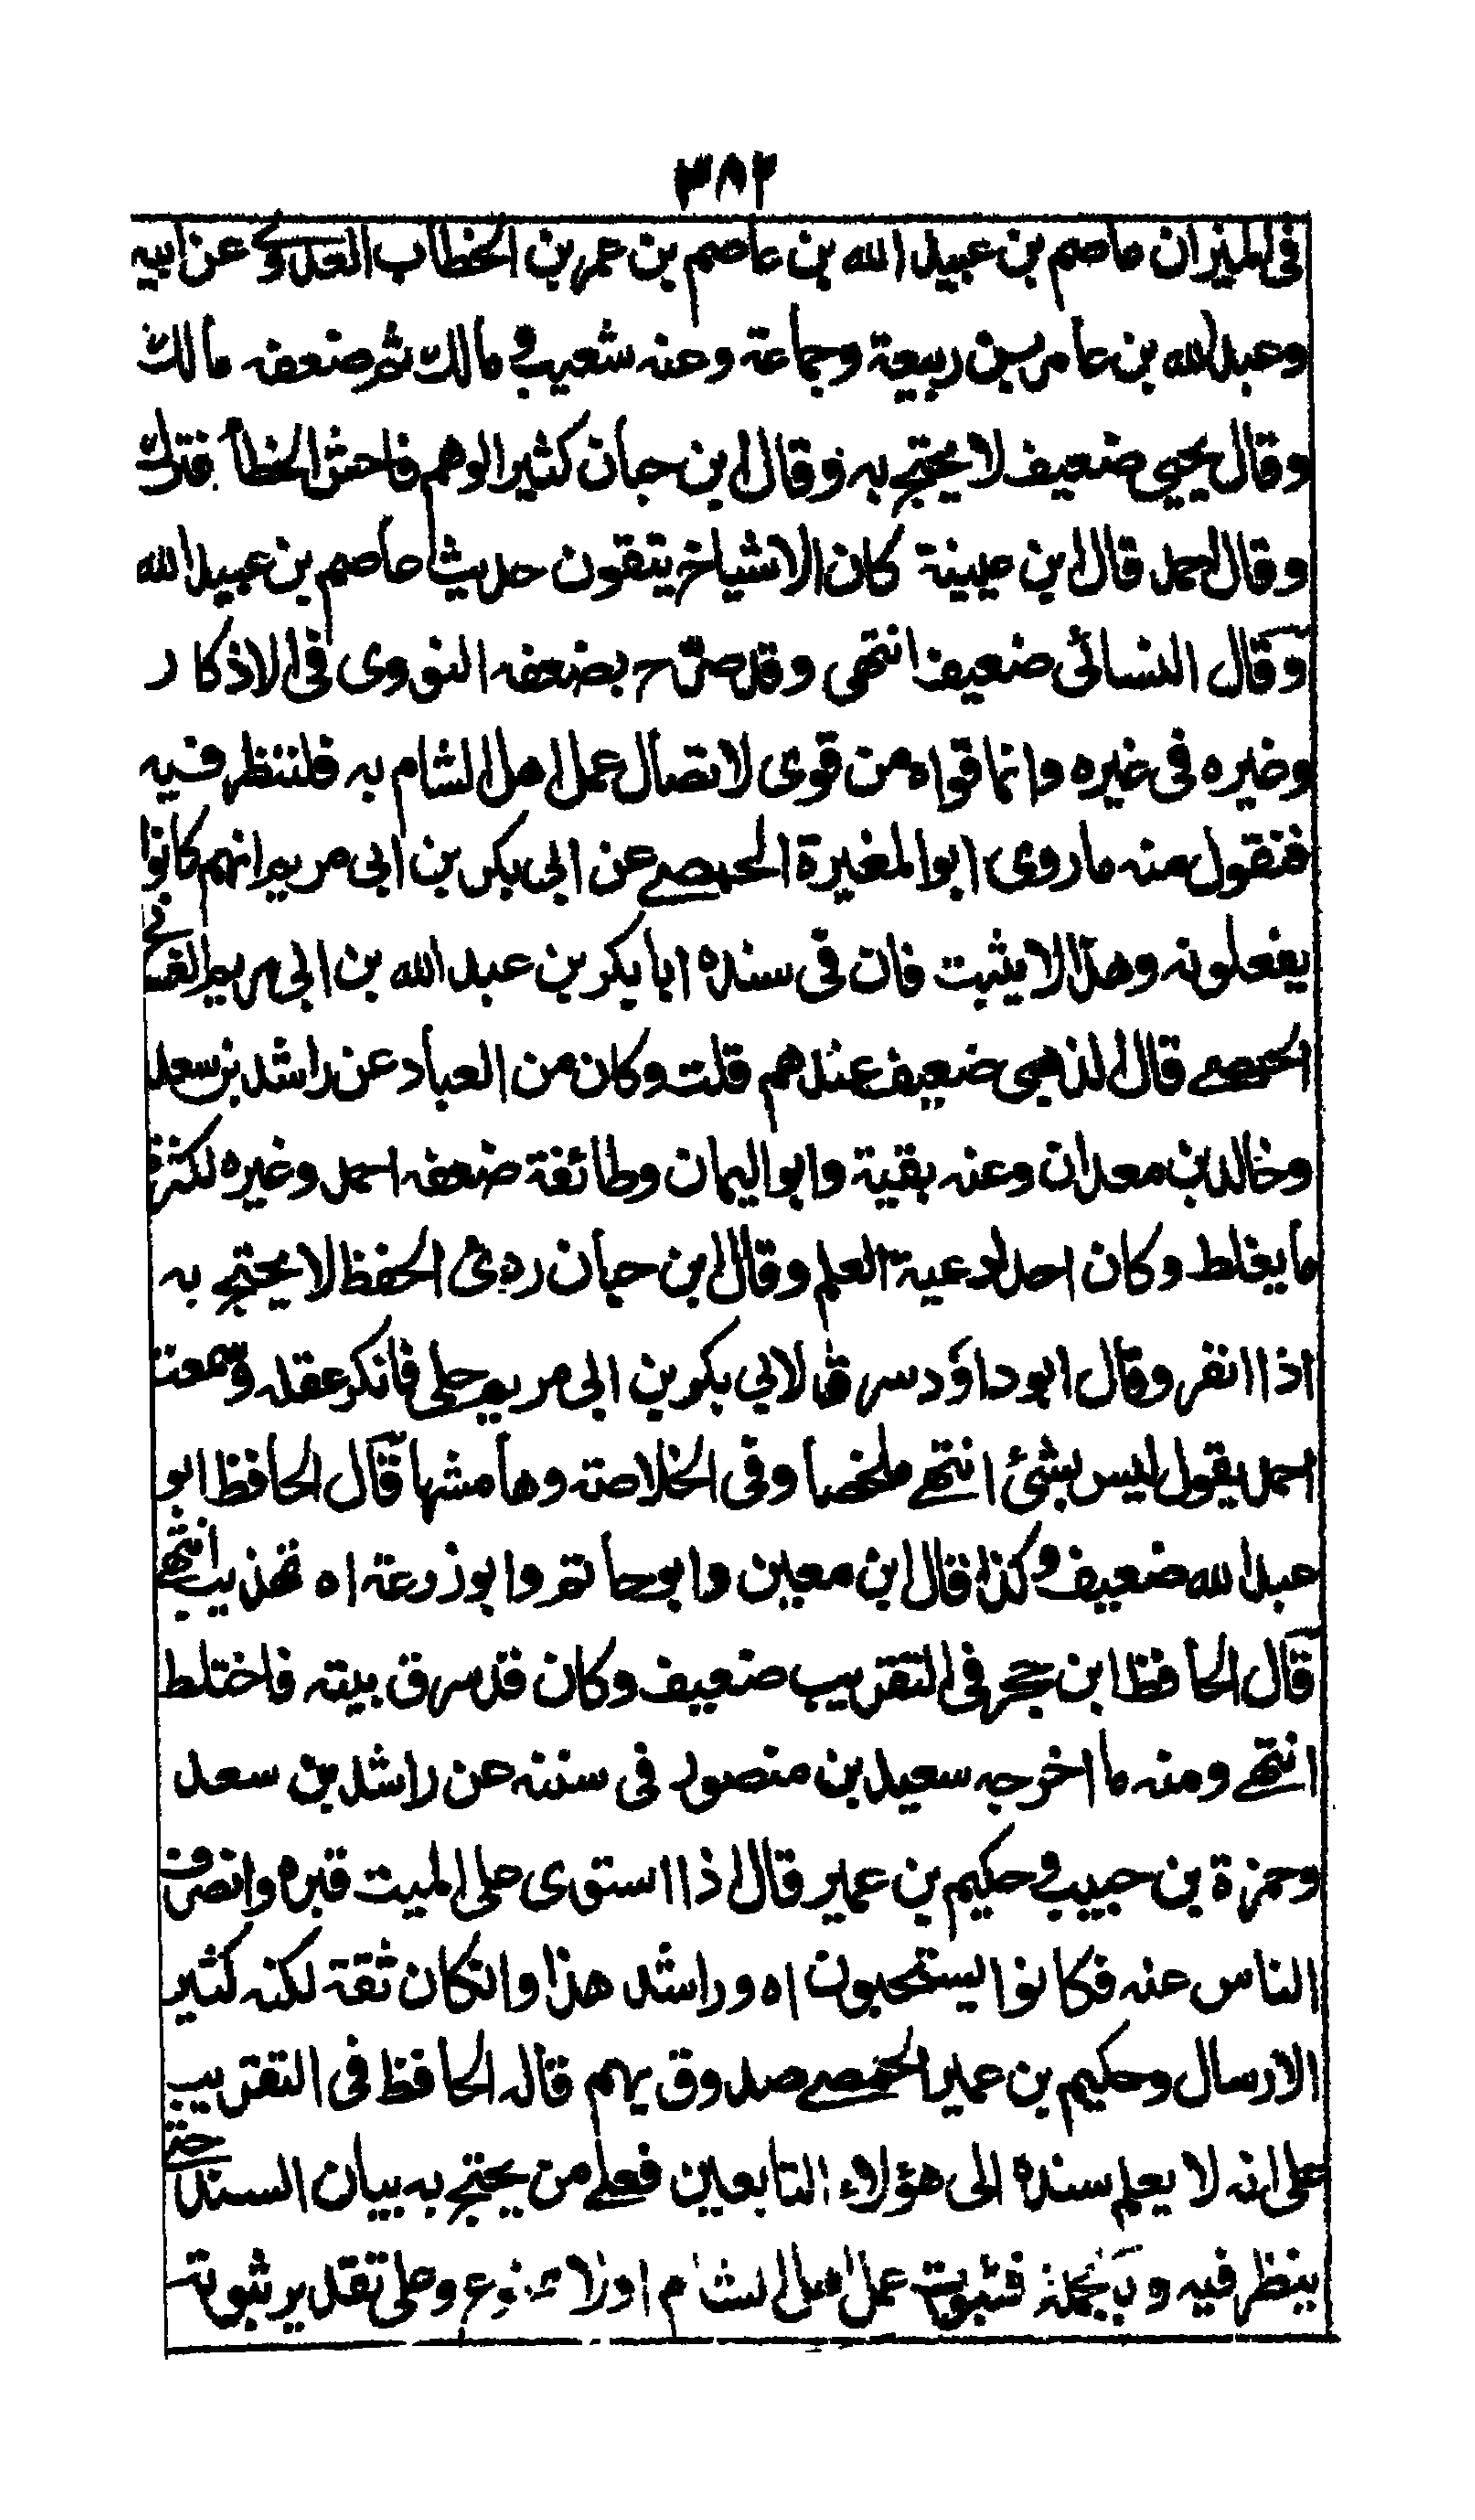 ٣٨٢
فى الميزان عاصم بن عبيد الله بن عاصم بن عمر بن الخطاب العدوى عن ابيه
وعبد الله بن عامر بن ربيعة وجماعة وعنه شعبة و مالك ثم ضعفه مالك
وقال يحيى ضعيف لا يحتج به وقال ابن حبان كثير الوهم فاحش الخطأ فترك
وقال احمد قال ابن عيينة كان الاشياخ يتقون حديث عاصم بن عبيد الله
وقال النسائى ضعيف انتهى وقد صرح بضعفه النووى فى الاذكار
وغيره فى غيره وانما قواه من قوى لاتصال عمل اهل الشام به فلننظر فيه
فنقول منه ما روى ابو المغيرة الحمصى عن ابى بكر بن ابى مريم انهم كانوا
يفعلونه وهذا لا يثبت فان فى سنده ابا بكر بن عبد الله بن ابى مريم الغسانى
الحمصى قال الذهبى ضعيف عندهم قلت وكان من العباد عن راشد بن سعد
وخالد بن معدان وعنه بقية وابو اليمان وطائفة ضعفه احمد وغيره لكثرة
ما يغلط وكان احد اوعية العلم وقال ابن حبان ردئ الحفظ لا يحتج به
اذا انفر وقال ابو داؤد سرق لابي بكر بن ابى مريم حلى فانكر عقله وسمعت
احمد يقول ليس بشئ انتهى ملخصا وفى الخلاصة وهامشها قال الحافظ ابو
عبد الله ضعيف وكذا قال ابن معين وابو حاتم وابو زرعة اه تهذيب انتهى
قال الحافظ ابن حجر فى التقريب ضعيف وكان قد سرق بيته فاختلط
انتهى ومنه ما اخرجه سعيد بن منصور فى سننه عن راشد بن سعد
وحمزة بن حبيب و حكيم بن عمير قال اذا استوى على الميت قبره وانصرف
الناس عنه فكانوا يستحبون اه وراشد هذا وان كان ثقة لكنه كثير
الارسال وحكيم بن عمير الحمصى صدوق يهم قاله الحافظ فى التقريب
على انه لا يعلم سنده الى هؤلاء التابعين فعلى من يحتج به بيان السند حتى
ينظر فيه وبالجملة فثبوت عمل اهل الشام اولا ممنوع وعلى تقدير ثبوته